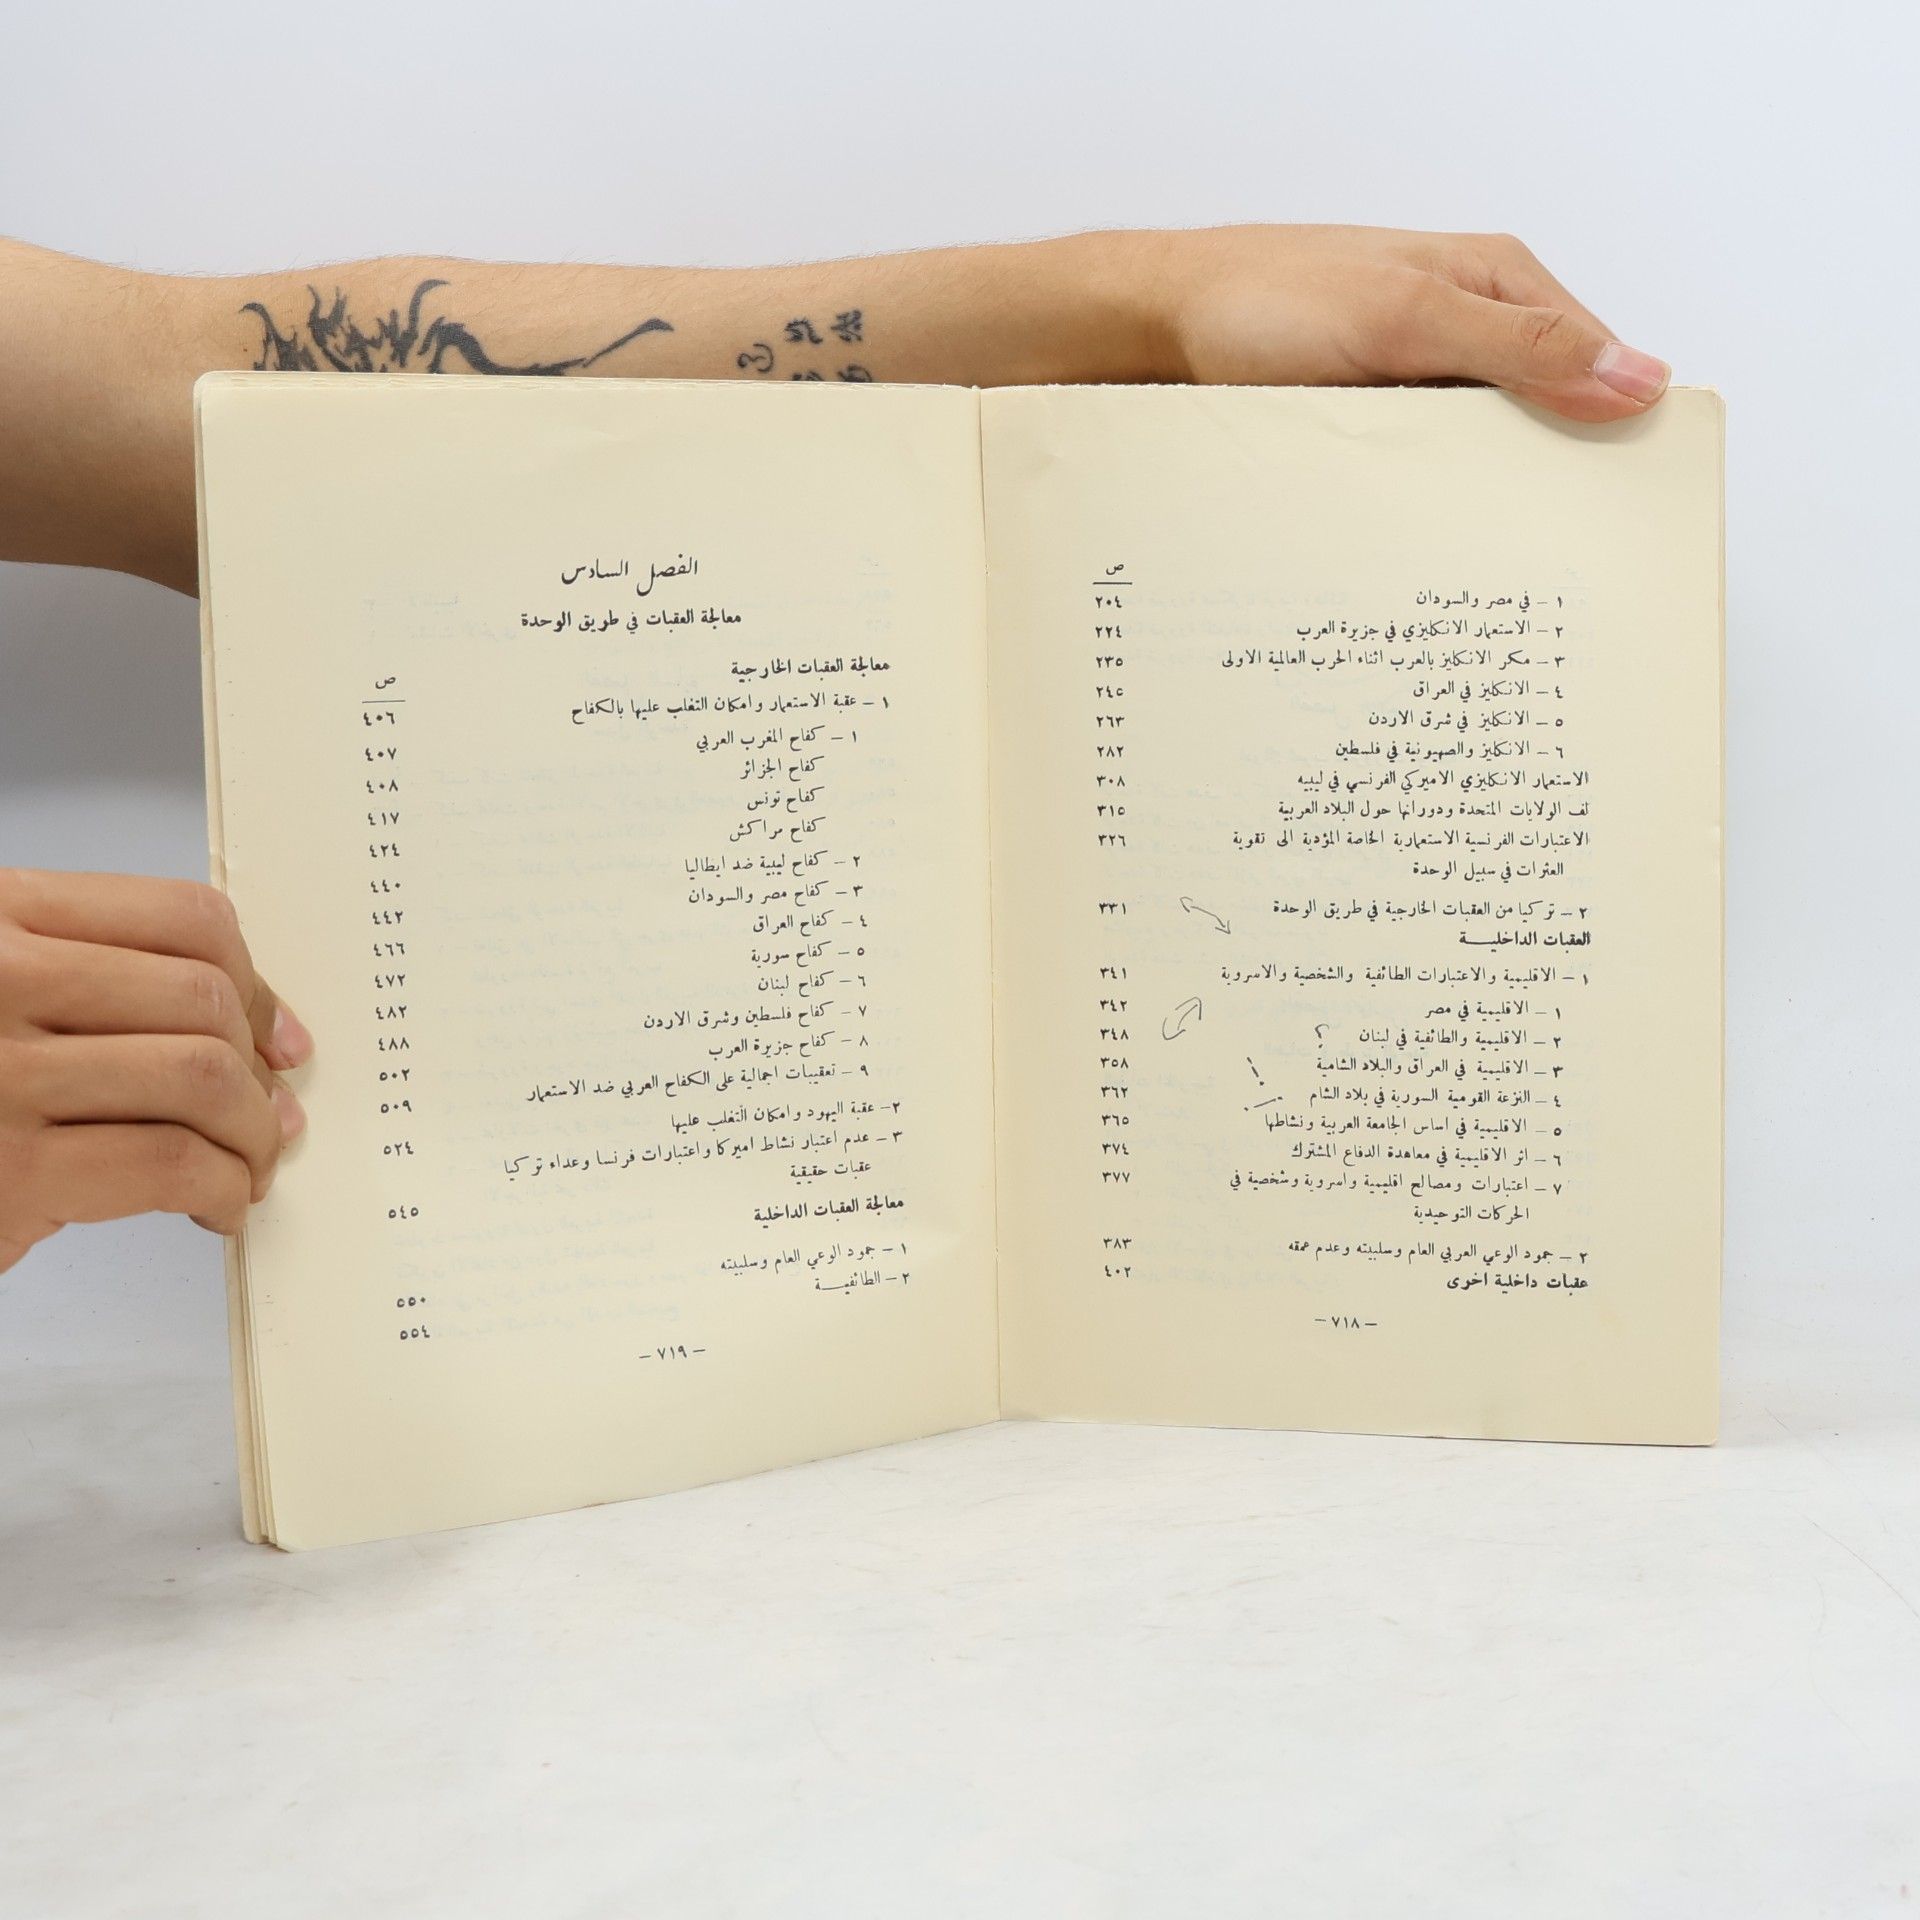 ص
١ – في مصر والسودان ٢٠٤
٢ – الاستعمار الانكليزي في جزيرة العرب ٢٢٤
٣ – مكر الانكليز بالعرب اثناء الحرب العالمية الاولى ٢٣٥
٤ – الانكليز في العراق ٢٤٥
٥ – الانكليز في شرق الاردن ٢٦٣
٦ – الانكليز والصهيونية في فلسطين ٢٨٢
الاستعمار الانكليزي الاميركي الفرنسي في ليبيه ٣٠٨
لف الولايات المتحدة ودورانها حول البلاد العربية ٣١٥
الاعتبارات الفرنسية الاستعمارية الخاصة المؤدية الى تقوية ٣٢٦
العثرات في سبيل الوحدة
٢ – تركيا من العقبات الخارجية في طريق الوحدة ٣٣١
العقبات الداخليــة
١ – الاقليمية والاعتبارات الطائفية والشخصية والاسروية ٣٤١
١ – الاقليمية في مصر ٣٤٢
٢ – الاقليمية والطائفية في لبنان ؟ ٣٤٨
٣ – الاقليمية في العراق والبلاد الشامية ! ٣٥٨
٤ – النزعة القومية السورية في بلاد الشام ٣٦٢
٥ – الاقليمية في اساس الجامعة العربية ونشاطها ٣٦٥
٦ – اثر الاقليمية في معاهدة الدفاع المشترك ٣٧٤
٧ – اعتبارات ومصالح اقليمية واسروية وشخصية في ٣٧٧
الحركات التوحيدية
٢ – جمود الوعي العربي العام وسلبيته وعدم عمقه ٣٨٣
عقبات داخلية اخرى ٤٠٢
– ٧١٨ –
الفصل السادس
معالجة العقبات في طريق الوحدة
معالجة العقبات الخارجية
ص
١ – عقبة الاستعمار وامكان التغلب عليها بالكفاح ٤٠٦
١ – كفاح المغرب العربي ٤٠٧
كفاح الجزائر ٤٠٨
كفاح تونس ٤١٧
كفاح مراكش ٤٢٤
٢ – كفاح ليبية ضد ايطاليا ٤٤٠
٣ – كفاح مصر والسودان ٤٤٢
٤ – كفاح العراق ٤٦٦
٥ – كفاح سورية ٤٧٢
٦ – كفاح لبنان ٤٨٢
٧ – كفاح فلسطين وشرق الاردن ٤٨٨
٨ – كفاح جزيرة العرب ٥٠٢
٩ – تعقيبات اجمالية على الكفاح العربي ضد الاستعمار ٥٠٩
٢– عقبة اليهود وامكان التغلب عليها ٥٢٤
٣ – عدم اعتبار نشاط اميركا واعتبارات فرنسا وعداء تركيا
عقبات حقيقية ٥٤٥
معالجة العقبات الداخلية
١ – جمود الوعي العام وسلبيته ٥٥٠
٢ – الطائفيــة ٥٥٤
– ٧١٩ –